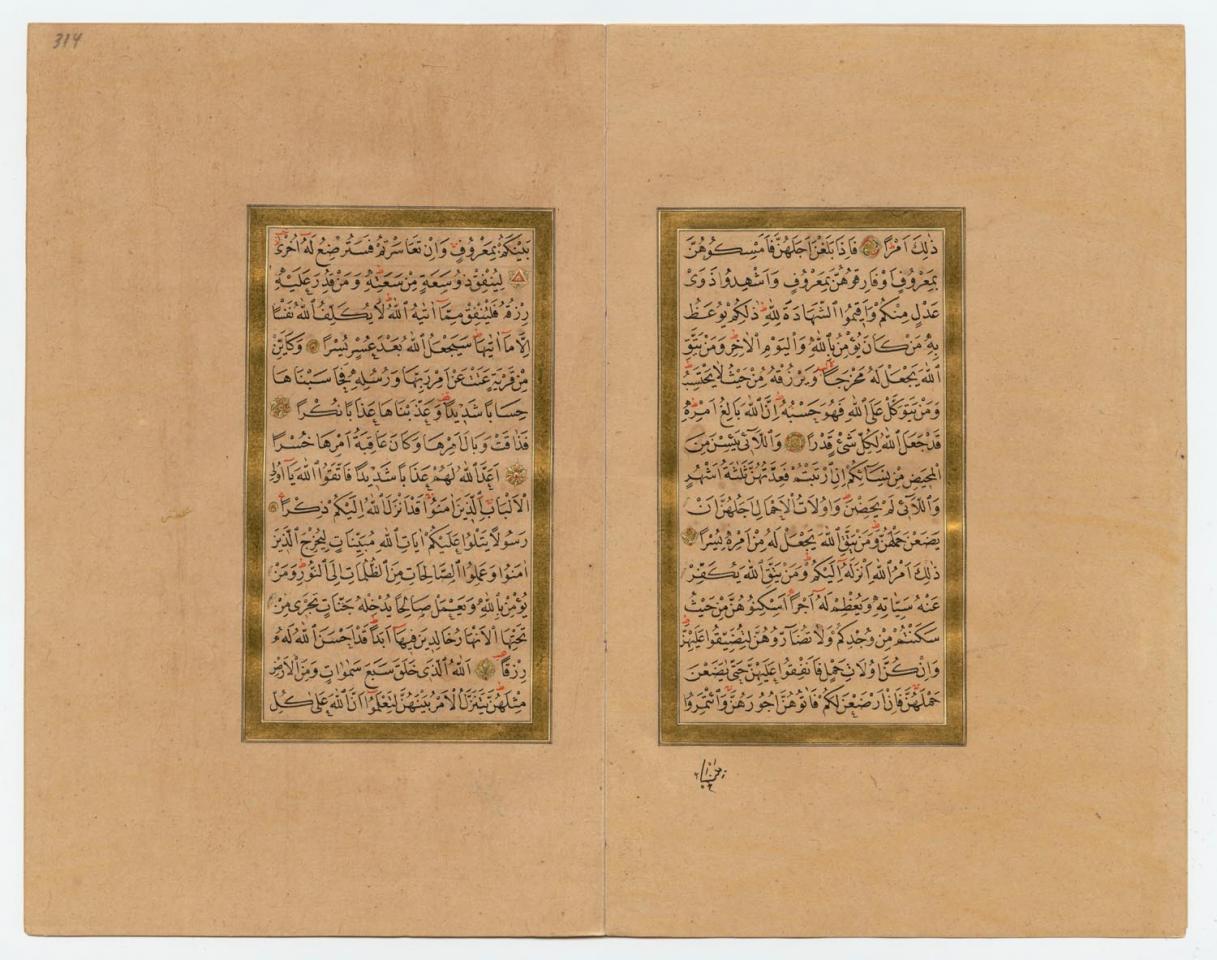 ذٰلِكَ اَمْرًا فَاِذَا بَلَغْنَ اَجَلَهُنَّ فَاَمْسِكُوهُنَّ
بِمَعْرُوفٍ اَوْ فَارِقُوهُنَّ بِمَعْرُوفٍ وَاَشْهِدُوا ذَوَىْ
عَدْلٍ مِنْكُمْ وَاَقِيمُوا الشَّهَادَةَ لِلّٰهِ ذٰلِكُمْ يُوعَظُ
بِهٖ مَنْ كَانَ يُؤْمِنُ بِاللّٰهِ وَالْيَوْمِ الْاٰخِرِ وَمَنْ يَتَّقِ
اللّٰهَ يَجْعَلْ لَهُ مَخْرَجًا وَيَرْزُقْهُ مِنْ حَيْثُ لَا يَحْتَسِبُ
وَمَنْ يَتَوَكَّلْ عَلَى اللّٰهِ فَهُوَ حَسْبُهُ اِنَّ اللّٰهَ بَالِغُ اَمْرِهٖ
قَدْ جَعَلَ اللّٰهُ لِكُلِّ شَىْءٍ قَدْرًا وَاللَّائِى يَئِسْنَ مِنَ
الْمَحِيضِ مِنْ نِسَائِكُمْ اِنِ ارْتَبْتُمْ فَعِدَّتُهُنَّ ثَلٰثَةُ اَشْهُرٍ
وَاللَّائِى لَمْ يَحِضْنَ وَاُولَاتُ الْاَحْمَالِ اَجَلُهُنَّ اَنْ
يَضَعْنَ حَمْلَهُنَّ وَمَنْ يَتَّقِ اللّٰهَ يَجْعَلْ لَهُ مِنْ اَمْرِهٖ يُسْرًا
ذٰلِكَ اَمْرُ اللّٰهِ اَنْزَلَهُ اِلَيْكُمْ وَمَنْ يَتَّقِ اللّٰهَ يُكَفِّرْ
عَنْهُ سَيِّاٰتِهٖ وَيُعْظِمْ لَهُ اَجْرًا اَسْكِنُوهُنَّ مِنْ حَيْثُ
سَكَنْتُمْ مِنْ وُجْدِكُمْ وَلَا تُضَارُّوهُنَّ لِتُضَيِّقُوا عَلَيْهِنَّ
وَاِنْ كُنَّ اُولَاتِ حَمْلٍ فَاَنْفِقُوا عَلَيْهِنَّ حَتّٰى يَضَعْنَ
حَمْلَهُنَّ فَاِنْ اَرْضَعْنَ لَكُمْ فَاٰتُوهُنَّ اُجُورَهُنَّ وَاْتَمِرُوا
314
بَيْنَكُمْ بِمَعْرُوفٍ وَاِنْ تَعَاسَرْتُمْ فَسَتُرْضِعُ لَهُ اُخْرٰى
لِيُنْفِقْ ذُو سَعَةٍ مِنْ سَعَتِهٖ وَمَنْ قُدِرَ عَلَيْهِ
رِزْقُهُ فَلْيُنْفِقْ مِمَّا اٰتٰيهُ اللّٰهُ لَا يُكَلِّفُ اللّٰهُ نَفْسًا
اِلَّا مَا اٰتٰيهَا سَيَجْعَلُ اللّٰهُ بَعْدَ عُسْرٍ يُسْرًا وَكَاَيِّنْ
مِنْ قَرْيَةٍ عَتَتْ عَنْ اَمْرِ رَبِّهَا وَرُسُلِهٖ فَحَاسَبْنَاهَا
حِسَابًا شَدِيدًا وَعَذَّبْنَاهَا عَذَابًا نُكْرًا
فَذَاقَتْ وَبَالَ اَمْرِهَا وَكَانَ عَاقِبَةُ اَمْرِهَا خُسْرًا
اَعَدَّ اللّٰهُ لَهُمْ عَذَابًا شَدِيدًا فَاتَّقُوا اللّٰهَ يَا اُولِى
الْاَلْبَابِ الَّذِينَ اٰمَنُوا قَدْ اَنْزَلَ اللّٰهُ اِلَيْكُمْ ذِكْرًا
رَسُولًا يَتْلُوا عَلَيْكُمْ اٰيَاتِ اللّٰهِ مُبَيِّنَاتٍ لِيُخْرِجَ الَّذِينَ
اٰمَنُوا وَعَمِلُوا الصَّالِحَاتِ مِنَ الظُّلُمَاتِ اِلَى النُّورِ وَمَنْ
يُؤْمِنْ بِاللّٰهِ وَيَعْمَلْ صَالِحًا يُدْخِلْهُ جَنَّاتٍ تَجْرِى مِنْ
تَحْتِهَا الْاَنْهَارُ خَالِدِينَ فِيهَا اَبَدًا قَدْ اَحْسَنَ اللّٰهُ لَهُ
رِزْقًا اَللّٰهُ الَّذِى خَلَقَ سَبْعَ سَمٰوَاتٍ وَمِنَ الْاَرْضِ
مِثْلَهُنَّ يَتَنَزَّلُ الْاَمْرُ بَيْنَهُنَّ لِتَعْلَمُوا اَنَّ اللّٰهَ عَلٰى كُلِّ